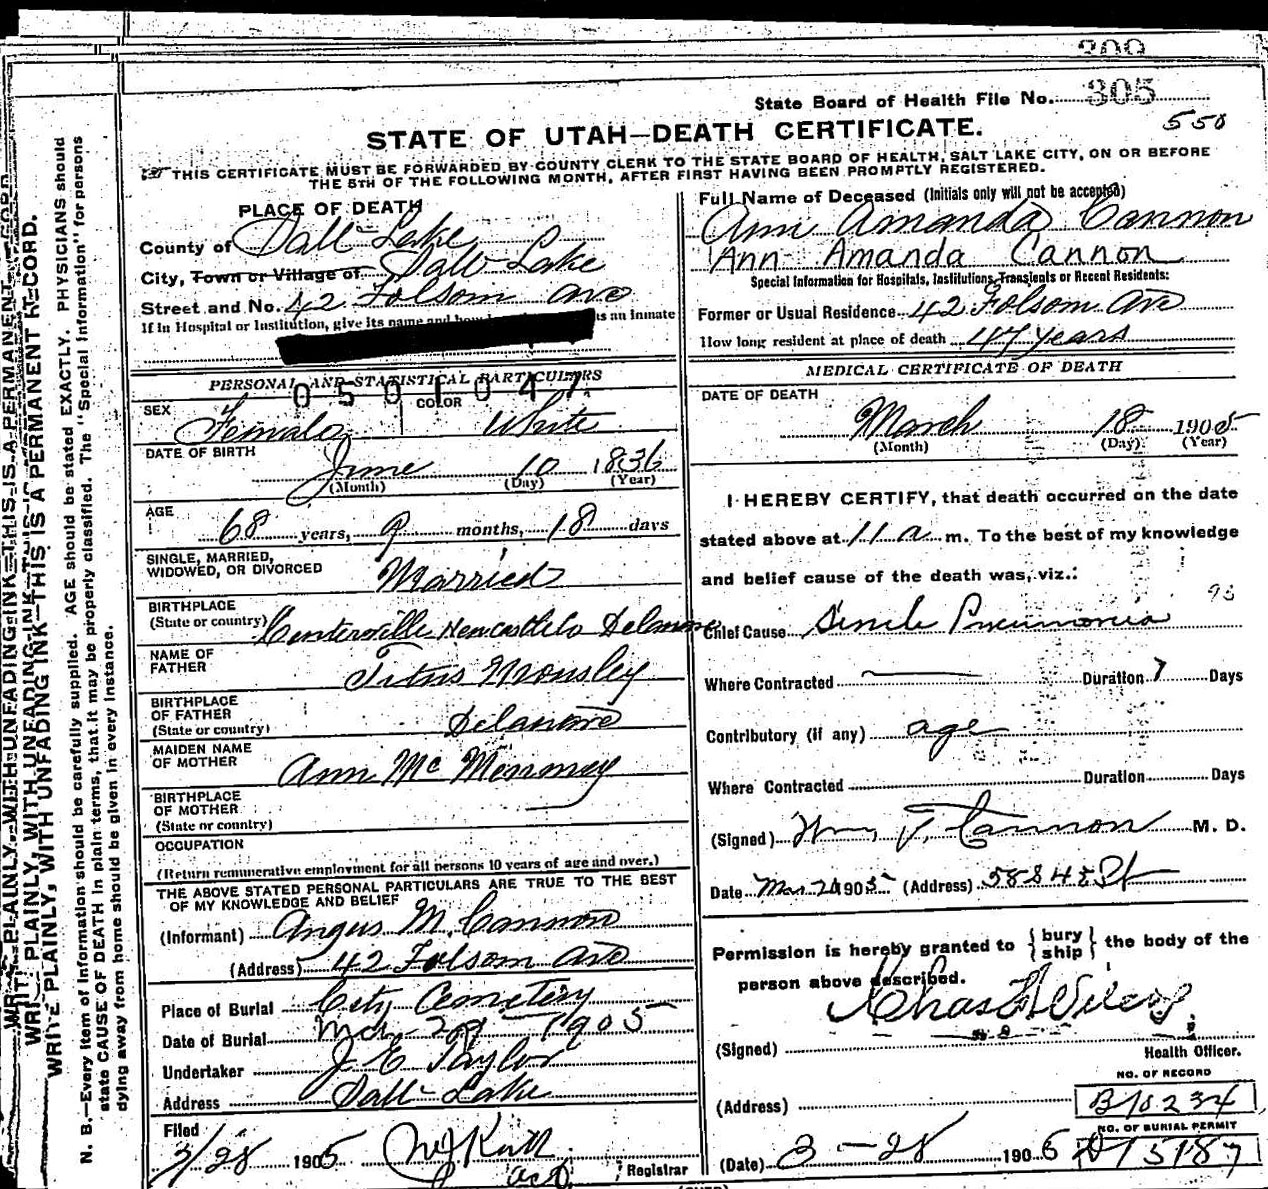 309
State Board of Health File No. 305
550
STATE OF UTAH—DEATH CERTIFICATE.
THIS CERTIFICATE MUST BE FORWARDED BY COUNTY CLERK TO THE STATE BOARD OF HEALTH, SALT LAKE CITY, ON OR BEFORE
THE 5TH OF THE FOLLOWING MONTH, AFTER FIRST HAVING BEEN PROMPTLY REGISTERED.
PLACE OF DEATH
County of Salt Lake
City, Town or Village of Salt Lake
Street and No. 42 Folsom Ave
If in Hospital or Institution, give its name and how as an inmate
Full Name of Deceased (Initials only will not be accepted)
Ann Amanda Cannon
Ann Amanda Cannon
Special Information for Hospitals, Institutions, Transients or Recent Residents:
Former or Usual Residence 42 Folsom Ave
How long resident at place of death 47 years
PERSONAL AND STATISTICAL PARTICULARS
0501047
SEX Female COLOR White
DATE OF BIRTH June 10 1836
(Month) (Day) (Year)
AGE 68 years, 9 months, 18 days
SINGLE, MARRIED,
WIDOWED, OR DIVORCED Married
BIRTHPLACE
(State or country) Centerville Newcastle Co Delaware
NAME OF
FATHER Titus Mousley
BIRTHPLACE
OF FATHER
(State or country) Delaware
MAIDEN NAME
OF MOTHER Ann Mc
BIRTHPLACE
OF MOTHER
(State or country)
OCCUPATION
(Return remunerative employment for all persons 10 years of age and over.)
THE ABOVE STATED PERSONAL PARTICULARS ARE TRUE TO THE BEST
OF MY KNOWLEDGE AND BELIEF
(Informant) Angus M. Cannon
(Address) 42 Folsom Ave
Place of Burial City Cemetery
Date of Burial Mar 1905
Undertaker J E Taylor
Address Salt Lake
Filed
3/28 1905 Registrar
MEDICAL CERTIFICATE OF DEATH
DATE OF DEATH
March 18 1905
(Month) (Day) (Year)
I HEREBY CERTIFY, that death occurred on the date
stated above at 11 a m. To the best of my knowledge
and belief cause of the death was, viz.:
93
Chief Cause Senile Pneumonia
Where Contracted — Duration 7 Days
Contributory (if any) age
Where Contracted Duration Days
(Signed) Wm T. Cannon M. D.
Date Mar 1905 (Address)
Permission is hereby granted to { bury ship } the body of the
person above described.
(Signed) Chas
Health Officer.
NO. OF RECORD
(Address) B10234
NO. OF BURIAL PERMIT
(Date) 3-28 1905 D15187
WRITE PLAINLY, WITH UNFADING INK—THIS IS A PERMANENT RECORD.
WRITE PLAINLY, WITH UNFADING INK—THIS IS A PERMANENT RECORD.
N. B.—Every item of information should be carefully supplied. AGE should be stated EXACTLY. PHYSICIANS should
state CAUSE OF DEATH in plain terms, that it may be properly classified. The "Special Information" for persons
dying away from home should be given in every instance.